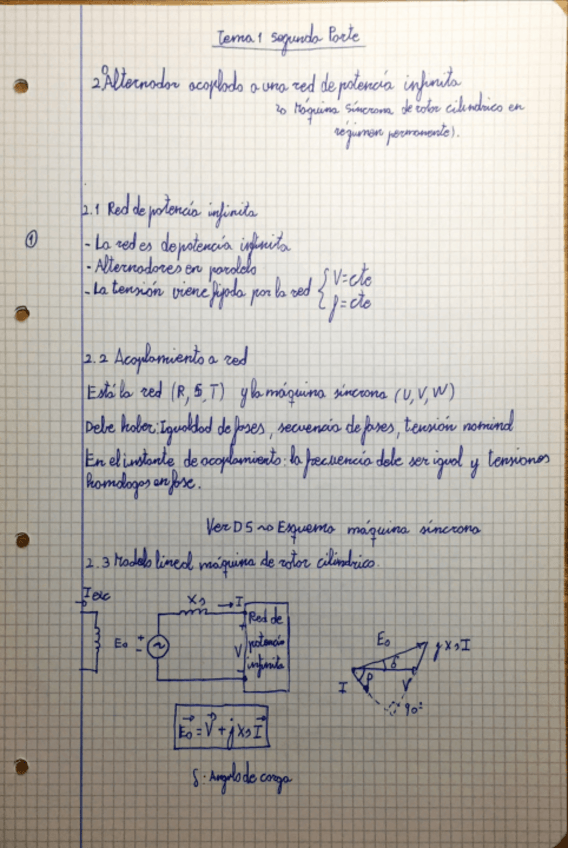 Tema 1 segunda Parte
2º Alternador acoplado a una red de potencia infinita
Máquina síncrona de rotor cilíndrico en
régimen permanente).
2.1 Red de potencia infinita
①
- La red es de potencia infinita
- Alternadores en paralelo
- La tensión viene fijada por la red { V=cte
f=cte
2.2 Acoplamiento a red
Está la red (R, S, T) y la máquina síncrona (U, V, W)
Debe haber: Igualdad de fases, secuencia de fases, tensión nominal
En el instante de acoplamiento: la frecuencia debe ser igual y tensiones
homologas en fase.
Ver D5 ~> Esquema máquina síncrona
2.3 Modelo lineal máquina de rotor cilíndrico.
Iexc
Xs → I
Red de
potencia
infinita
E₀ + -
+ V -
E₀ jXsI
δ
φ
I V
90º
E₀ = V + jXsI
δ: Angulo de carga